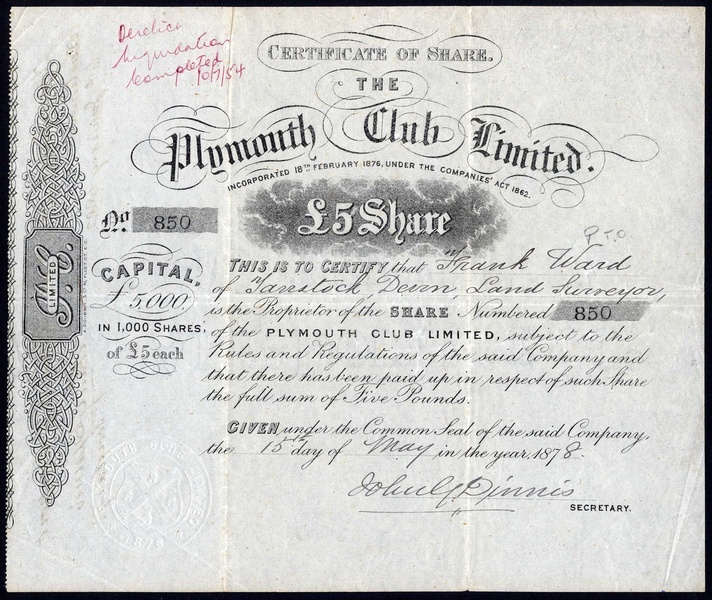 Derelict
Liquidation
Completed
10/7/54
CERTIFICATE OF SHARE.
THE
Plymouth Club Limited.
INCORPORATED 18TH FEBRUARY 1876, UNDER THE COMPANIES' ACT 1862.
£5 Share
No. 850
P.T.O.
CAPITAL,
£5,000
IN 1,000 SHARES,
of £5 each
P.C.
LIMITED
THIS IS TO CERTIFY that Frank Ward
of Tavistock Devon, Land Surveyor,
is the Proprietor of the SHARE Numbered 850
of the PLYMOUTH CLUB LIMITED, subject to the
Rules and Regulations of the said Company and
that there has been paid up in respect of such Share
the full sum of Five Pounds.
GIVEN under the Common Seal of the said Company,
the 15th day of May in the year 1878.
SECRETARY.